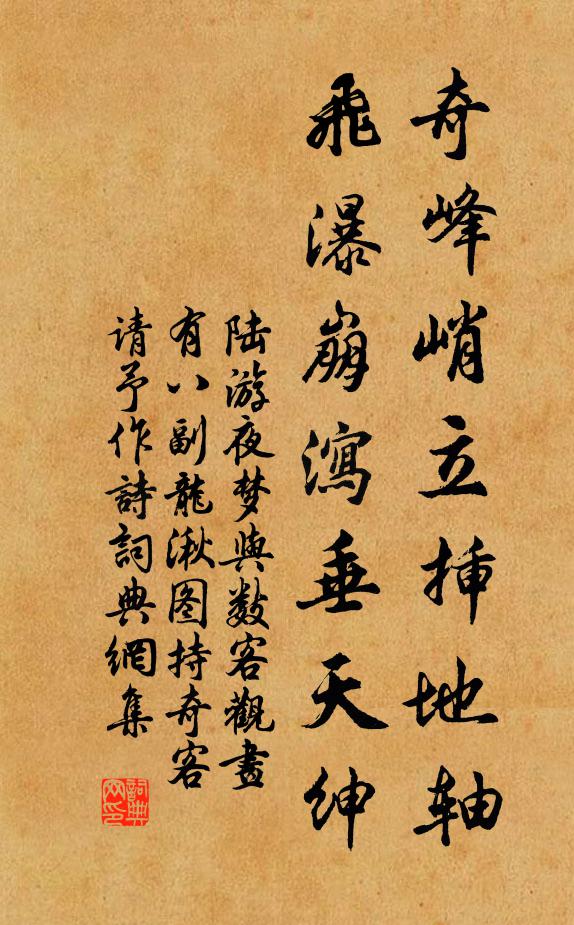 奇峰峭立插地軸
飛瀑崩瀉垂天紳
陆游夜梦與数客觀畫
有八副龍湫图持奇客
请予作詩詞典網集
詞典
网印